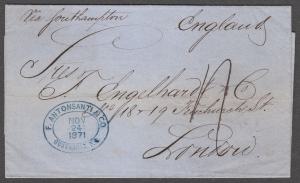 Via Southampton
England
Sres F. Engelhardt & Co
18 & 19 Fenchurch St.
London
F. ANTONSANTI & CO
NOV
24
1871